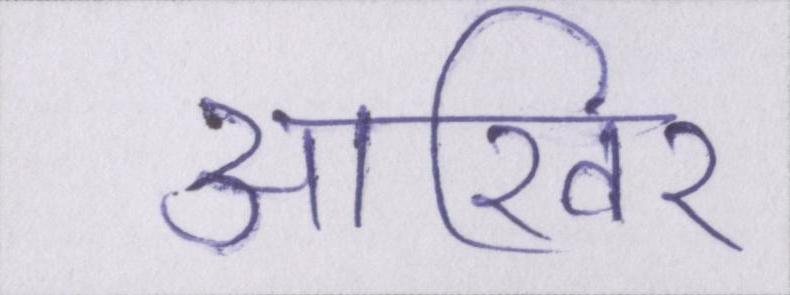 आखिर